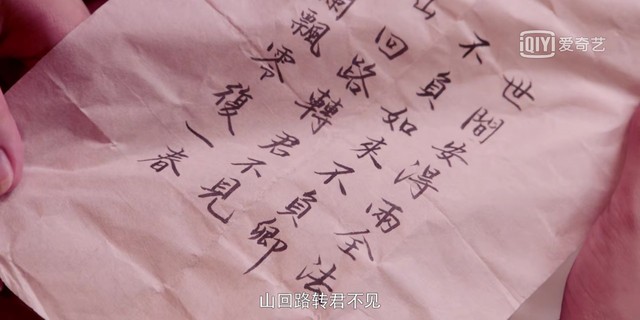 iQIYI 爱奇艺
世間安得兩全法
不負如來不負卿
山回路轉君不見
飄零復一春
山回路转君不见